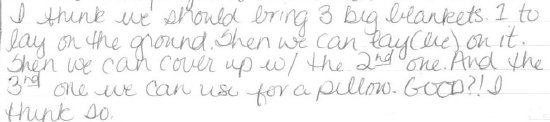 I think we should bring 3 big blankets. 1 to
lay on the ground. Then we can lay(lie) on it.
Then we can cover up w/ the 2nd one. And the
3nd one we can use for a pillow. GOOD?! I
think so.